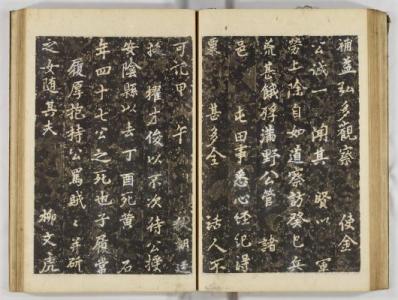 補益弘多觀察 使金
公誠一聞其 賢以 軍
勞上除自如道察訪癸巳兵
荒甚餓殍滿野公管 諸
邑 屯田事悉心經紀得
粟 甚多全 活人不
可 甲 午 朝廷
擢 才俊以不次待公授
安陰縣以去丁酉死黃 石
年四十七公之死也子履常
履厚抱持公罵賊〻并斫
之女隨其夫 柳文虎